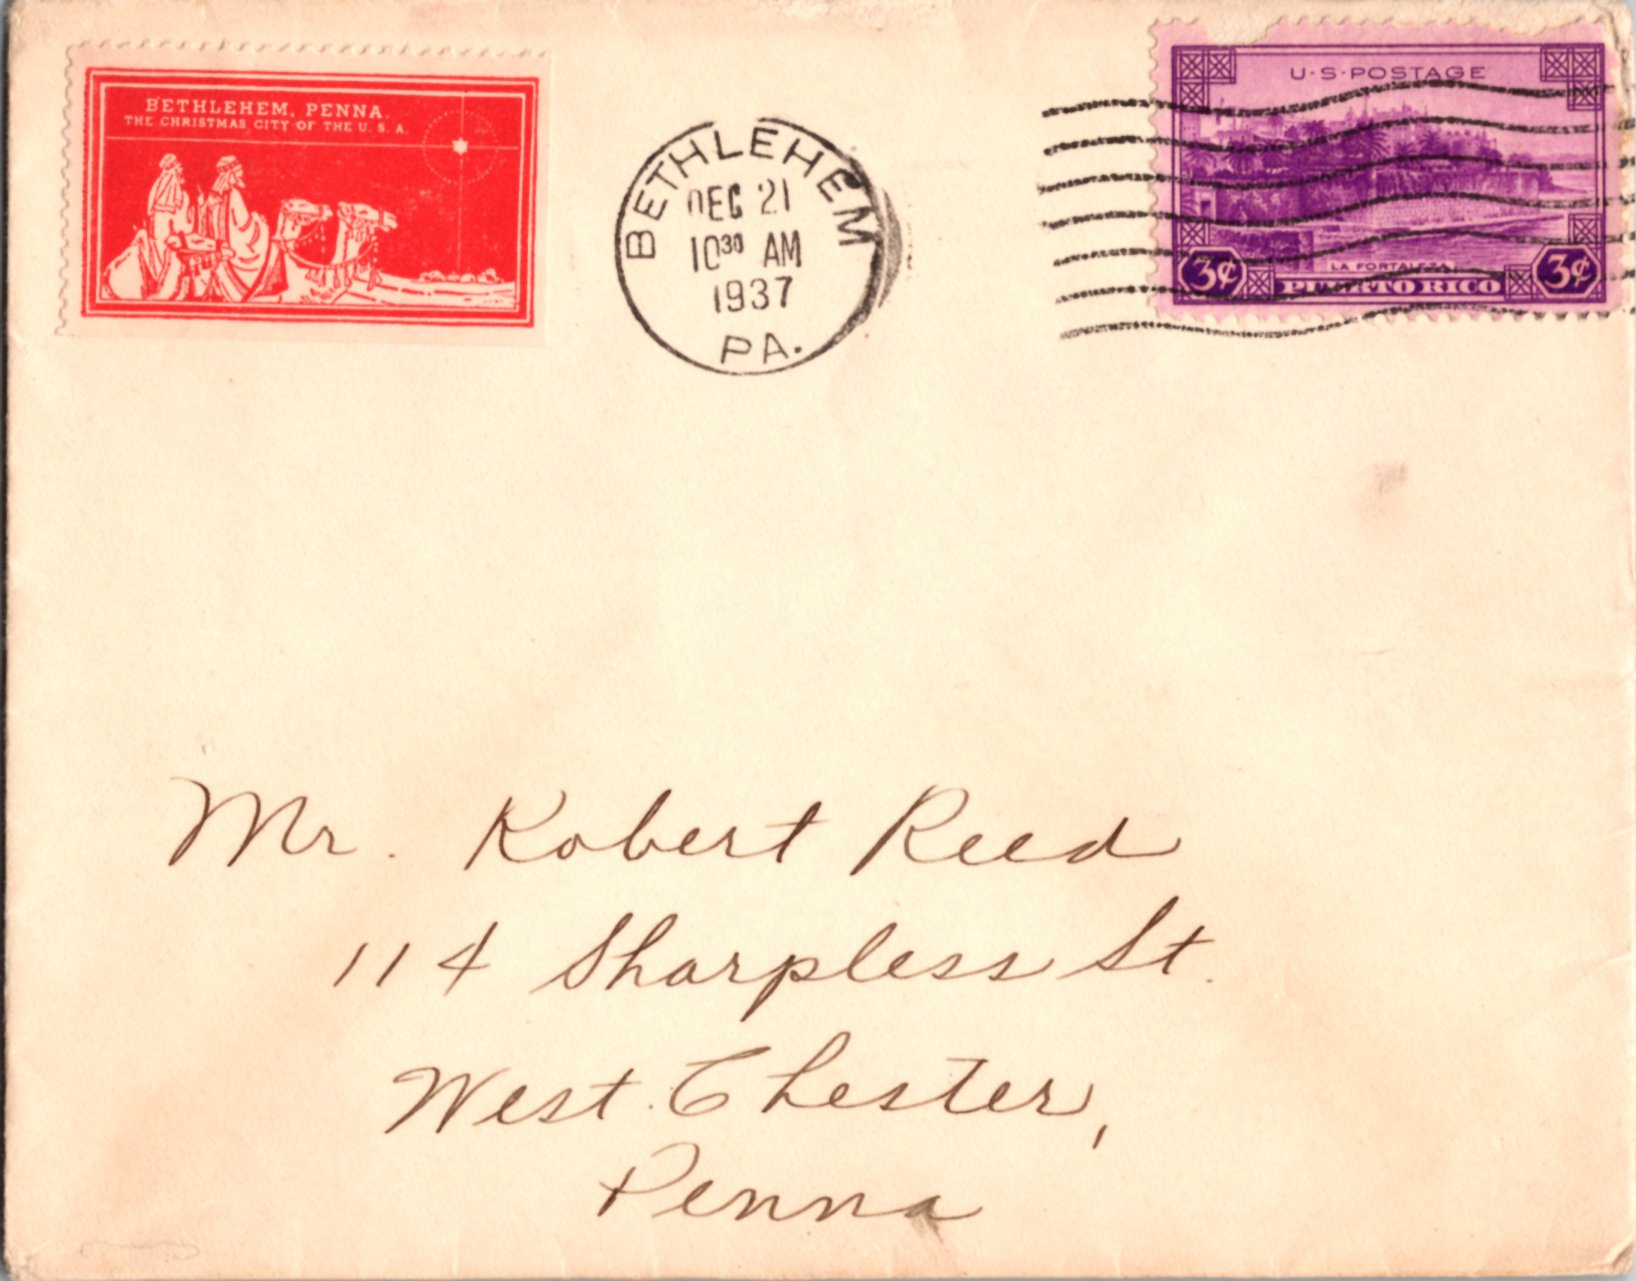 BETHLEHEM, PENNA.
THE CHRISTMAS CITY OF THE U. S. A.
BETHLEHEM
DEC 21
10 30 AM
1937
PA.
U·S·POSTAGE
LA FORTALEZA
3¢ PUERTO RICO 3¢
Mr. Robert Reed
114 Sharpless St.
West Chester,
Penna